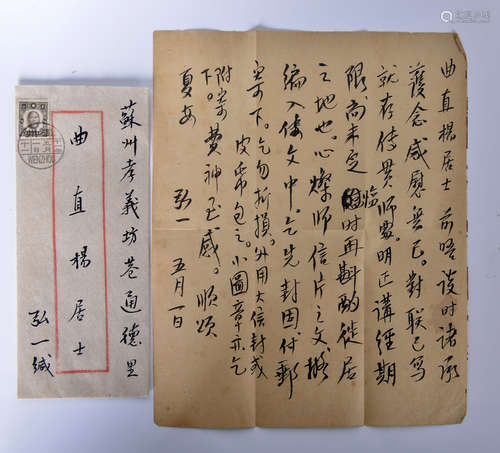 蘇州孝義坊巷通德里
曲直楊居士
弘一緘
WENZHOU
曲直楊居士 前晤談時諸承
護念感慰無已。對聯已寫
就存傳貫師處。明正講經期
限尚未定臨時再斟酌徙居
之地也。心燦師信片之文擬
編入倭文中。乞先封固付郵
寄下。乞勿折損。外用大信封或
皮帋包之。小圖章亦乞
附寄下。費神至感。順頌
夏安
弘一 五月一日